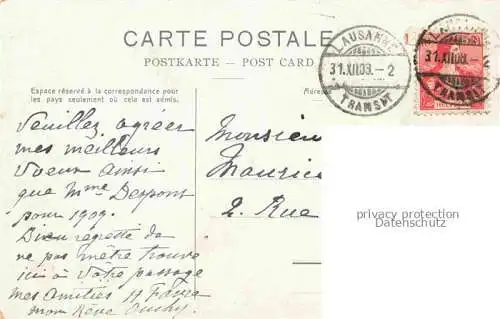 CARTE POSTALE
POSTKARTE — POST CARD
Espace réservé à la correspondance pour
les pays seulement où cela est admis.
Adresse
LAUSANNE
31.XII.08.-2
TRANSIT
LAUSANNE
31.XII.08.-
TRANSIT
Veuillez agréer
mes meilleurs
voeux ainsi
que Mme Despons
pour 1909.
Bien regretté de
ne pas m'être trouvé
ici à votre passage
Mes Amitiés H Favre
mon Rêve Ouchy
Monsieur
Maurice
2. Rue
privacy protection
Datenschutz